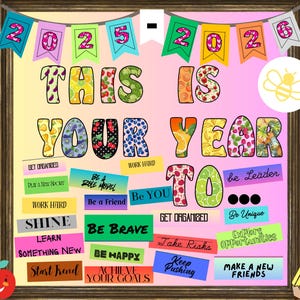 2025 - 2026
THIS IS
YOUR YEAR
TO...
GET ORGANISED!
WORK HARD!
Be a Leader
BE A ROLE MODEL
PLAY A NEW SPORT
Be YOU
WORK HARD!
Be a Friend
GET ORGANISED!
Be Unique
SHINE
BE BRAVE
Explore Opportunities
LEARN
SOMETHING NEW
Take Risks
BE HAPPY
Start Trend
ACHIEVE
YOUR GOALS
Keep
Pushing
MAKE A NEW
FRIENDS